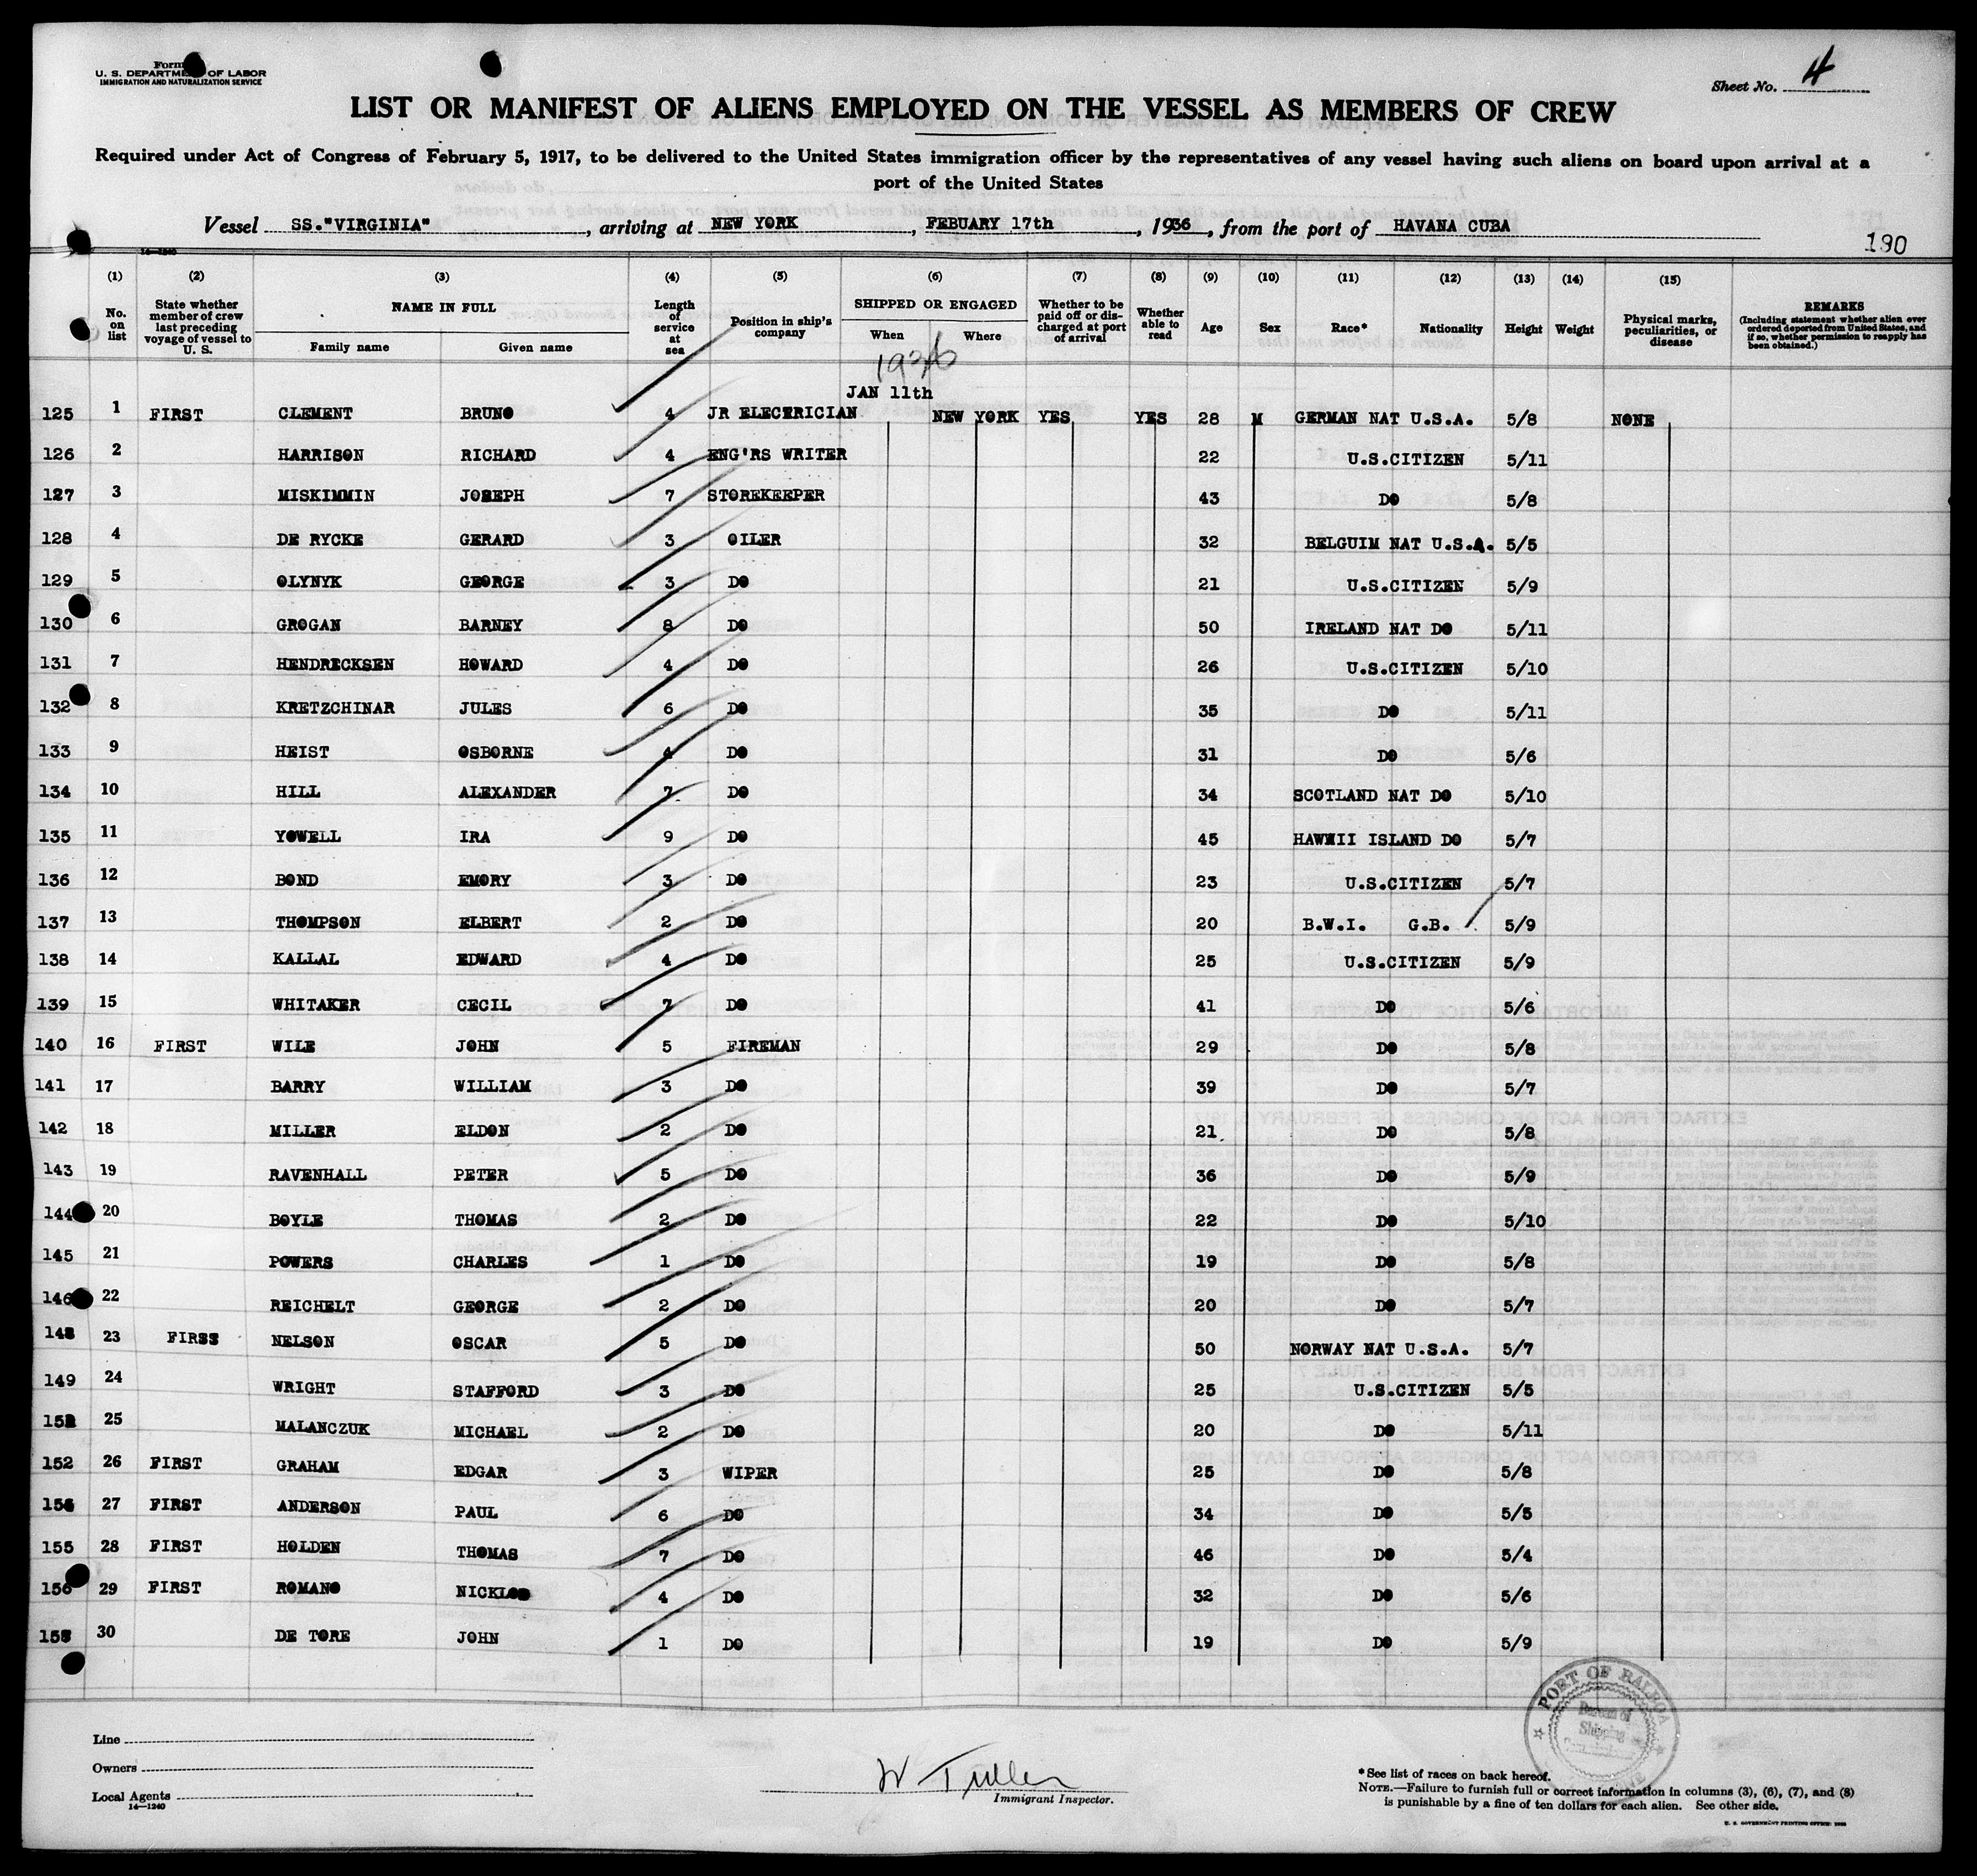 Form
U. S. DEPARTMENT OF LABOR
IMMIGRATION AND NATURALIZATION SERVICE
Sheet No. 4
LIST OR MANIFEST OF ALIENS EMPLOYED ON THE VESSEL AS MEMBERS OF CREW
Required under Act of Congress of February 5, 1917, to be delivered to the United States immigration officer by the representatives of any vessel having such aliens on board upon arrival at a
port of the United States
Vessel SS."VIRGINIA", arriving at NEW YORK, FEBUARY 17th, 1936, from the port of HAVANA CUBA
190
14—1240
(1) (2) (3) (4) (5) (6) (7) (8) (9) (10) (11) (12) (13) (14) (15)
No. on list
State whether member of crew last preceding voyage of vessel to U. S.
NAME IN FULL
Family name Given name
Length of service at sea
Position in ship's company
SHIPPED OR ENGAGED
When Where
Whether to be paid off or discharged at port of arrival
Whether able to read
Age
Sex
Race*
Nationality
Height
Weight
Physical marks, peculiarities, or disease
REMARKS
(Including statement whether alien ever ordered deported from United States, and if so, whether permission to reapply has been obtained.)
1936
JAN 11th
125 1 FIRST CLEMENT BRUNO 4 JR ELECTRICIAN NEW YORK YES YES 28 M GERMAN NAT U.S.A. 5/8 NONE
126 2 HARRISON RICHARD 4 ENG'RS WRITER 22 U.S.CITIZEN 5/11
127 3 MISKIMMIN JOSEPH 7 STOREKEEPER 43 DO 5/8
128 4 DE RYCKE GERARD 3 OILER 32 BELGUIM NAT U.S.A. 5/5
129 5 OLYNYK GEORGE 3 DO 21 U.S.CITIZEN 5/9
130 6 GROGAN BARNEY 8 DO 50 IRELAND NAT DO 5/11
131 7 HENDRECKSEN HOWARD 4 DO 26 U.S.CITIZEN 5/10
132 8 KRETZCHINAR JULES 6 DO 35 DO 5/11
133 9 HEIST OSBORNE 4 DO 31 DO 5/6
134 10 HILL ALEXANDER 7 DO 34 SCOTLAND NAT DO 5/10
135 11 YOWELL IRA 9 DO 45 HAWWII ISLAND DO 5/7
136 12 BOND EMORY 3 DO 23 U.S.CITIZEN 5/7
137 13 THOMPSON ELBERT 2 DO 20 B.W.I. G.B. 5/9
138 14 KALLAL EDWARD 4 DO 25 U.S.CITIZEN 5/9
139 15 WHITAKER CECIL 7 DO 41 DO 5/6
140 16 FIRST WILE JOHN 5 FIREMAN 29 DO 5/8
141 17 BARRY WILLIAM 3 DO 39 DO 5/7
142 18 MILLER ELDON 2 DO 21 DO 5/8
143 19 RAVENHALL PETER 5 DO 36 DO 5/9
144 20 BOYLE THOMAS 2 DO 22 DO 5/10
145 21 POWERS CHARLES 1 DO 19 DO 5/8
146 22 REICHELT GEORGE 2 DO 20 DO 5/7
148 23 FIRST NELSON OSCAR 5 DO 50 NORWAY NAT U.S.A. 5/7
149 24 WRIGHT STAFFORD 3 DO 25 U.S.CITIZEN 5/5
25 MALANCZUK MICHAEL 2 DO 20 DO 5/11
152 26 FIRST GRAHAM EDGAR 3 WIPER 25 DO 5/8
27 FIRST ANDERSON PAUL 6 DO 34 DO 5/5
155 28 FIRST HOLDEN THOMAS 7 DO 46 DO 5/4
156 29 FIRST ROMANO 4 DO 32 DO 5/6
30 DE TORE JOHN 1 DO 19 DO 5/9
PORT OF BALBOA
Bureau of
Shipping
Line
Owners
Local Agents
14—1240
Immigrant Inspector.
*See list of races on back hereof.
NOTE.—Failure to furnish full or correct information in columns (3), (6), (7), and (8)
is punishable by a fine of ten dollars for each alien. See other side.
U. S. GOVERNMENT PRINTING OFFICE